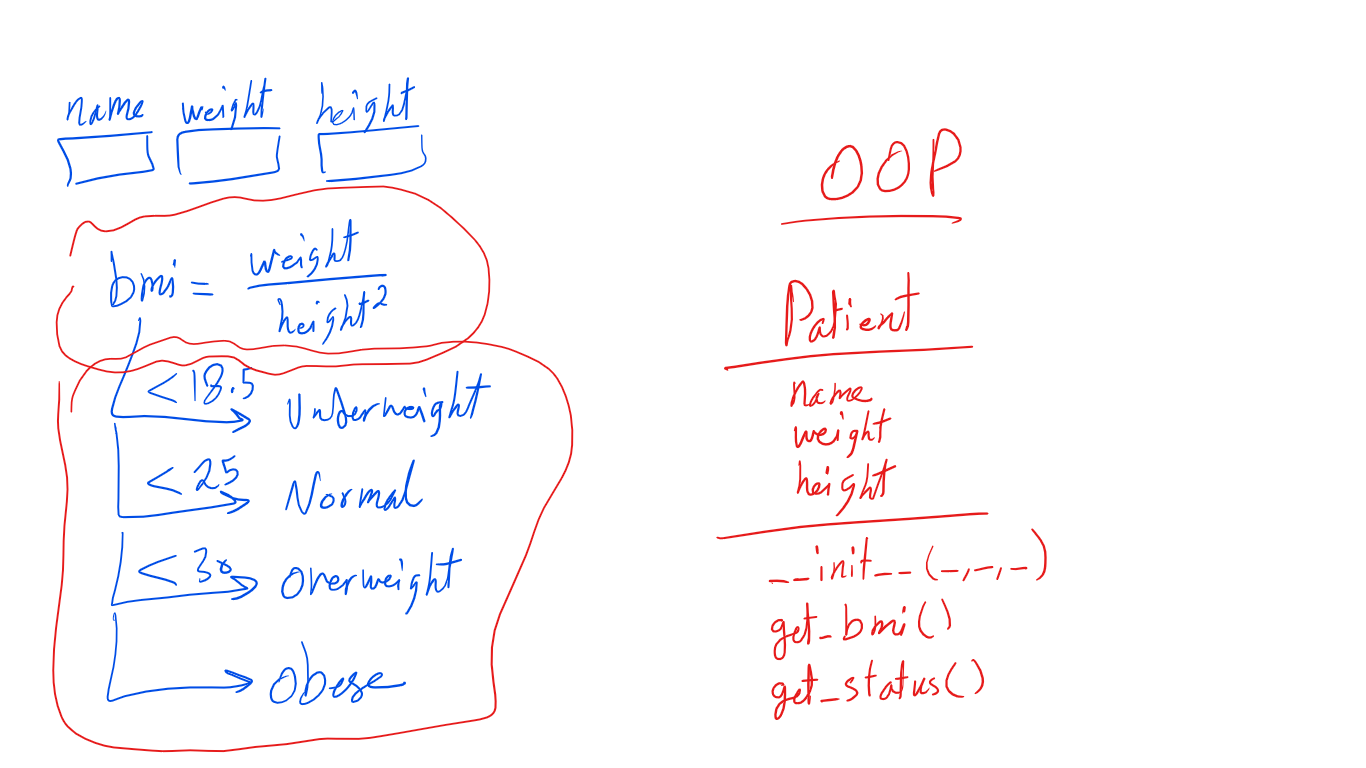 name weight height
bmi = weight
height²
< 18.5 Underweight
< 25 Normal
< 30 Overweight
Obese
OOP
Patient
name
weight
height
__init__(_,_,_)
get_bmi()
get_status()